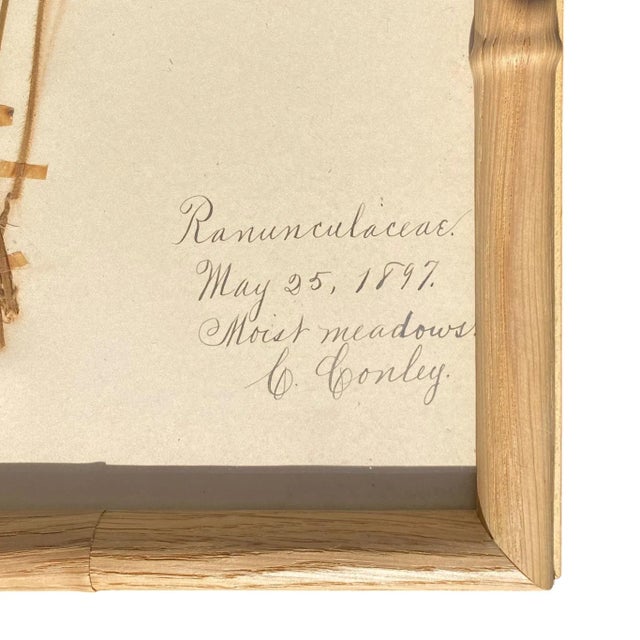 Ranunculaceae.
May 25, 1897.
Moist meadows.
C. Conley.